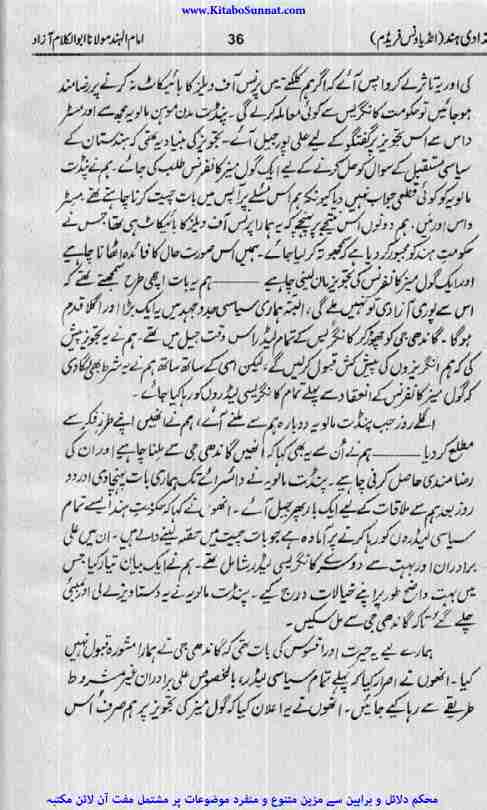 www.KitaboSunnat.com
آزادی ہند (انڈیا ونس فریڈم) 36 امام الہند مولانا ابوالکلام آزاد
کی اور یہ تاثر لے کر واپس آئے کہ اگر ہم کلکتے میں پرنس آف ویلز کا بائیکاٹ نہ کرنے پر رضامند
ہو جائیں تو حکومت کانگریس سے کوئی معاملہ کرلے گی۔ پنڈت مدن موہن مالویہ مجھ سے اور مسٹر
داس سے اس تجویز پر گفتگو کے لیے علی پور جیل آئے۔ تجویز کی بنیاد یہ تھی کہ ہندستان کے
سیاسی مستقبل کے سوال کو حل کرنے کے لیے ایک گول میز کانفرنس طلب کی جائے۔ ہم نے پنڈت
مالویہ کو کوئی قطعی جواب نہیں دیا کیونکہ ہم اس مسئلے پر آپس میں بات چیت کرنا چاہتے تھے۔ مسٹر
داس اور میں، ہم دونوں اس نتیجے پر پہنچے کہ یہ ہمارا پرنس آف ویلز کا بائیکاٹ ہی تھا جس نے
حکومتِ ہند کو مجبور کر دیا ہے کہ سمجھوتہ کر لیا جائے۔ ہمیں اس صورت حال کا فائدہ اٹھانا چاہیے
اور ایک گول میز کانفرنس کی تجویز مان لینی چاہیے ——— ہم یہ بات اچھی طرح سمجھتے تھے کہ
اس سے پوری آزادی تو نہیں ملے گی، البتہ ہماری سیاسی جدوجہد میں یہ ایک بڑا اور اگلا قدم
ہوگا۔ گاندھی جی کو چھوڑ کر کانگریس کے تمام لیڈر اس وقت جیل میں تھے۔ ہم نے یہ تجویز پیش
کی کہ ہم انگریزوں کی پیش کش قبول کرلیں گے، لیکن اسی کے ساتھ ساتھ ہم نے یہ شرط بھی لگا دی
کہ گول میز کانفرنس کے انعقاد سے پہلے تمام کانگریسی لیڈروں کو رہا کیا جائے۔
اگلے روز جب پنڈت مالویہ دوبارہ ہم سے ملنے آئے، ہم نے انھیں اپنے طرز فکر سے
مطلع کر دیا ——— ہم نے اُن سے یہ بھی کہا کہ انھیں گاندھی جی سے ملنا چاہیے اور ان کی
رضامندی حاصل کرنی چاہیے۔ پنڈت مالویہ نے وائسرائے تک ہماری بات پہنچا دی اور دو
روز بعد ہم سے ملاقات کے لیے ایک بار پھر جیل آئے۔ انھوں نے کہا کہ حکومتِ ہند ایسے تمام
سیاسی لیڈروں کو رہا کرنے پر آمادہ ہے جو بات چیت میں حصّہ لینے والے ہیں۔ ان میں علی
برادران اور بہت سے دوسرے کانگریسی لیڈر شامل تھے۔ ہم نے ایک بیان تیار کیا جس
میں بہت واضح طور پر اپنے خیالات درج کیے۔ پنڈت مالویہ نے یہ دستاویز لے لی اور بمبئی
چلے گئے تاکہ گاندھی جی سے مل سکیں۔
ہمارے لیے یہ حیرت اور افسوس کی بات تھی کہ گاندھی جی نے ہمارا مشورہ قبول نہیں
کیا۔ انھوں نے اصرار کیا کہ پہلے تمام سیاسی لیڈر، بالخصوص علی برادران غیر مشروط
طریقے سے رہا کیے جائیں۔ انھوں نے یہ اعلان کیا کہ گول میز کی تجویز پر ہم صرف اُس
محکم دلائل و براہین سے مزین متنوع و منفرد موضوعات پر مشتمل مفت آن لائن مکتبہ